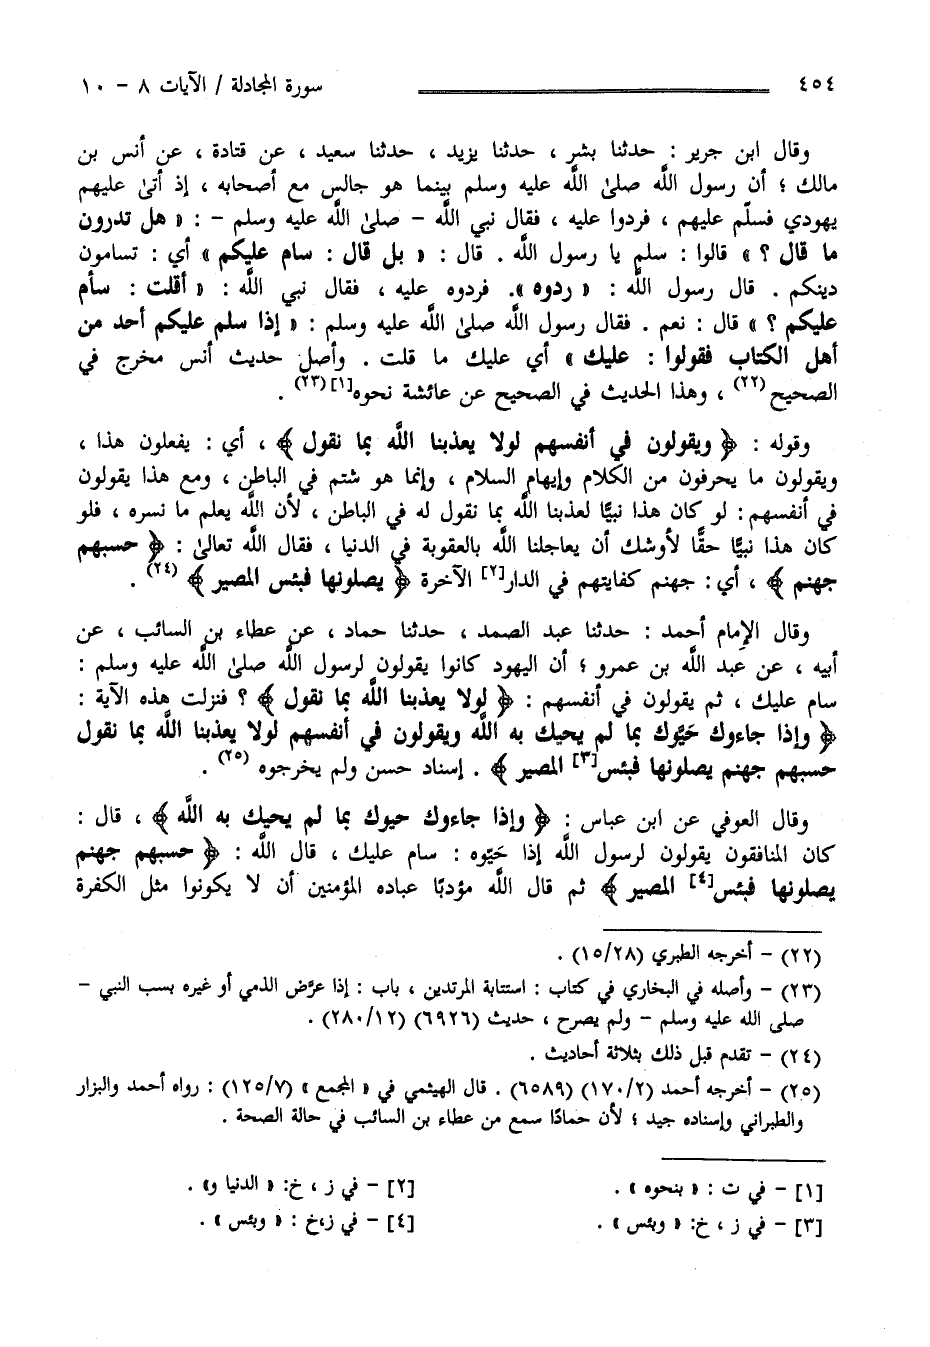 ٤٥٤ سورة المجادلة / الآيات ٨ - ١٠
وقال ابن جرير : حدثنا بشر ، حدثنا يزيد ، حدثنا سعيد ، عن قتادة ، عن أنس بن
مالك ؛ أن رسول اللَّه صلى اللَّه عليه وسلم بينما هو جالس مع أصحابه ، إذ أتىٰ عليهم
يهودي فسلّم عليهم ، فردوا عليه ، فقال نبي اللَّه - صلىٰ اللَّه عليه وسلم - : « هل تدرون
ما قال ؟ » قالوا : سلم يا رسول اللَّه . قال : « بل قال : سام عليكم » أي : تسامون
دينكم . قال رسول اللَّه : « ردوه ». فردوه عليه ، فقال نبي اللَّه : « أقلت : سأم
عليكم ؟ » قال : نعم . فقال رسول اللَّه صلىٰ اللَّه عليه وسلم : « إذا سلم عليكم أحد من
أهل الكتاب فقولوا : عليك » أي عليك ما قلت . وأصل حديث أنس مخرج في
الصحيح (٢٢) ، وهذا الحديث في الصحيح عن عائشة نحوه[١] (٢٣) .
وقوله : ﴿ ويقولون في أنفسهم لولا يعذبنا اللَّه بما نقول ﴾ ، أي : يفعلون هذا ،
ويقولون ما يحرفون من الكلام وإيهام السلام ، وإنما هو شتم في الباطن ، ومع هذا يقولون
في أنفسهم : لو كان هذا نبيًّا لعذبنا اللَّه بما نقول له في الباطن ، لأن اللَّه يعلم ما نسره ، فلو
كان هذا نبيًّا حقًّا لأوشك أن يعاجلنا اللَّه بالعقوبة في الدنيا ، فقال اللَّه تعالىٰ : ﴿ حسبهم
جهنم ﴾ ، أي : جهنم كفايتهم في الدار[٢] الآخرة ﴿ يصلونها فبئس المصير ﴾ (٢٤) .
وقال الإمام أحمد : حدثنا عبد الصمد ، حدثنا حماد ، عن عطاء بن السائب ، عن
أبيه ، عن عبد اللَّه بن عمرو ؛ أن اليهود كانوا يقولون لرسول اللَّه صلى اللَّه عليه وسلم :
سام عليك ، ثم يقولون في أنفسهم : ﴿ لولا يعذبنا اللَّه بما نقول ﴾ ؟ فنزلت هذه الآية :
﴿ وإذا جاءوك حَيَّوك بما لم يحيك به اللَّه ويقولون في أنفسهم لولا يعذبنا اللَّه بما نقول
حسبهم جهنم يصلونها فبئس[٣] المصير ﴾ . إسناد حسن ولم يخرجوه (٢٥) .
وقال العوفي عن ابن عباس : ﴿ وإذا جاءوك حيوك بما لم يحيك به اللَّه ﴾ ، قال :
كان المنافقون يقولون لرسول اللَّه إذا حَيّوه : سام عليك ، قال اللَّه : ﴿ حسبهم جهنم
يصلونها فبئس[٤] المصير ﴾ ثم قال اللَّه مؤدبًا عباده المؤمنين أن لا يكونوا مثل الكفرة
(٢٢) - أخرجه الطبري (١٥/٢٨) .
(٢٣) - وأصله في البخاري في كتاب : استتابة المرتدين ، باب : إذا عرّض الذمي أو غيره بسب النبي -
صلى الله عليه وسلم - ولم يصرح ، حديث (٦٩٢٦) (٢٨٠/١٢) .
(٢٤) - تقدم قبل ذلك بثلاثة أحاديث .
(٢٥) - أخرجه أحمد (١٧٠/٢) (٦٥٨٩) . قال الهيثمي في « المجمع » (١٢٥/٧) : رواه أحمد والبزار
والطبراني وإسناده جيد ؛ لأن حمادًا سمع من عطاء بن السائب في حالة الصحة .
[١] - في ت : « بنحوه » . [٢] - في ز ، خ: « الدنيا و» .
[٣] - في ز ، خ: « وبئس » . [٤] - في ز،خ : « وبئس » .